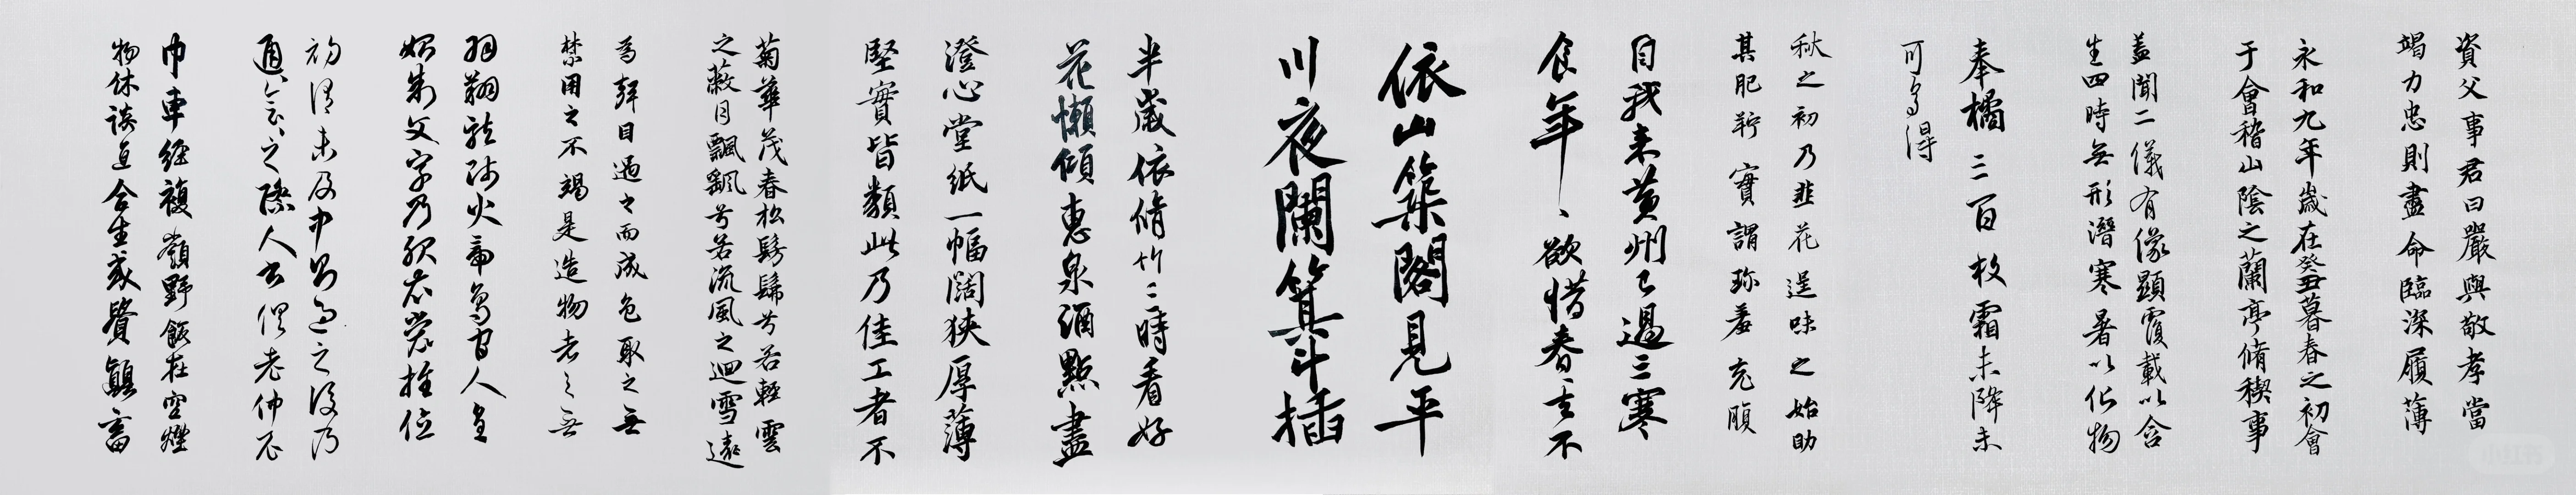 資父事君曰嚴與敬孝當
竭力忠則盡命臨深履薄
永和九年歲在癸丑暮春之初會
于會稽山陰之蘭亭脩稧事
蓋聞二儀有像顯覆載以含
生四時無形潛寒暑以化物
奉橘三百枚霜未降未
可多得
秋之初乃韭花逞味之始助
其肥羜實謂珍羞充腹
自我来黃州已過三寒
食年、欲惜春春去不
依山築閣見平
川夜闌箕斗插
半歲依脩竹三時看好
花懶傾惠泉酒點盡
澄心堂紙一幅闊狹厚薄
堅實皆類此乃佳工者不
菊華茂春松髣髴兮若輕雲
之蔽月飄颻兮若流風之迴雪遠
為聲目遇之而成色取之無
禁用之不竭是造物者之無
羽翔龍師火帝鳥官人皇
始制文字乃服衣裳推位
初謂未及中則過之後乃
通會之際人書俱老仲尼
巾車經複嶺野飯在空煙
物休談道含生感鬢